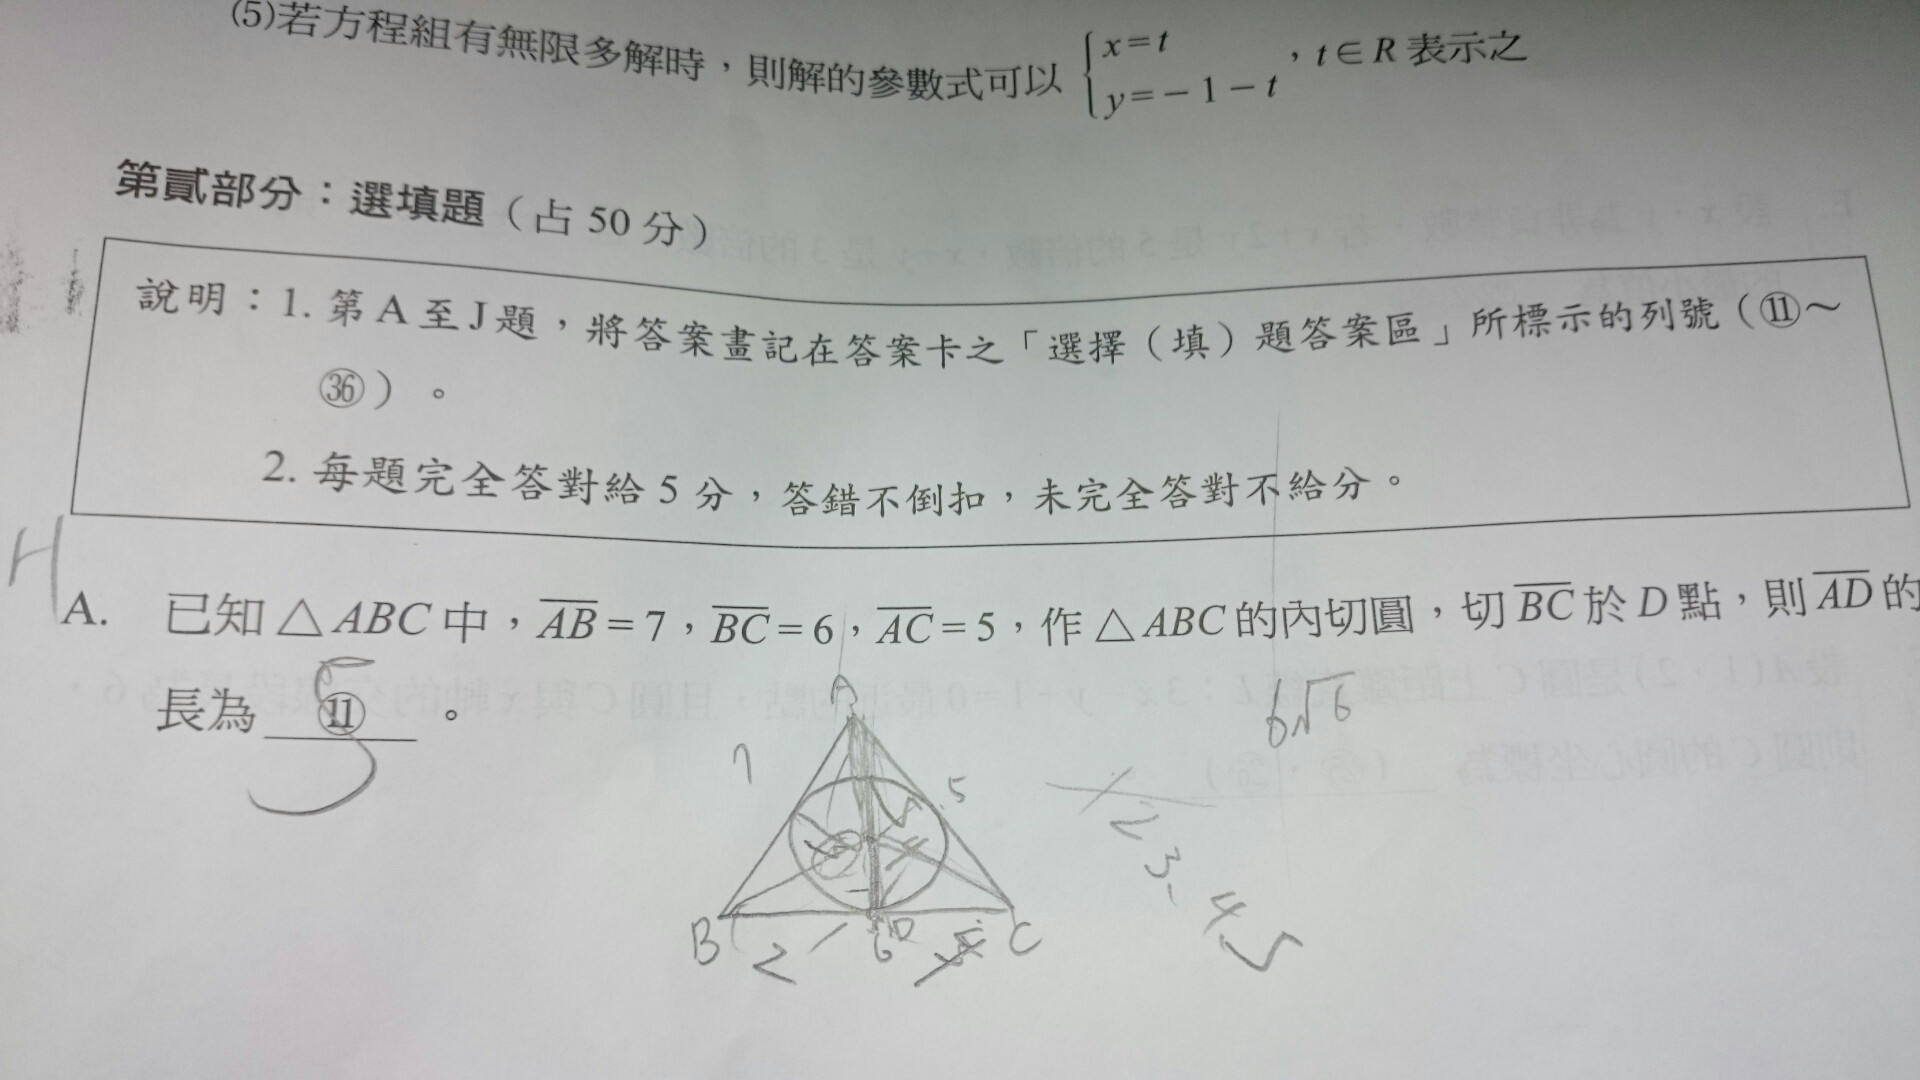 (5)若方程組有無限多解時，則解的參數式可以 { x=t
y=-1-t ，t∈R 表示之
第貳部分：選填題（占 50 分）
說明：1. 第 A 至 J 題，將答案畫記在答案卡之「選擇（填）題答案區」所標示的列號（⑪～
㊱）。
2. 每題完全答對給 5 分，答錯不倒扣，未完全答對不給分。
H
A. 已知 △ABC 中，AB=7，BC=6，AC=5，作 △ABC 的內切圓，切 BC 於 D 點，則 AD 的
長為 ⑪ 。
5
6√6
A
7
5
B
D
C
2
6
2 3 4 5